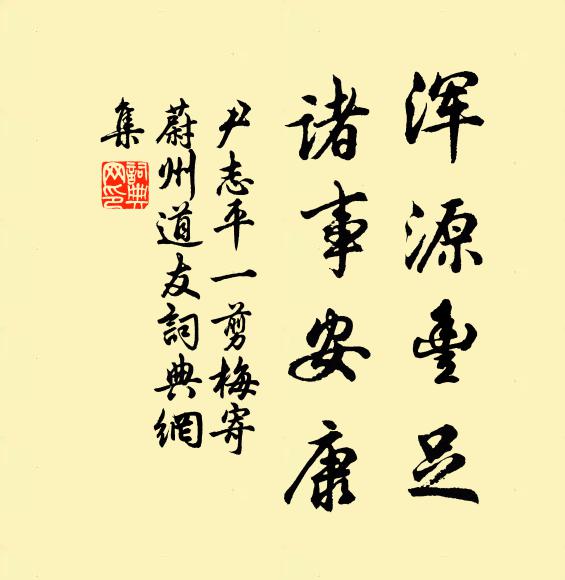 浑源豊足
诸事安康
尹志平一剪梅寄
蔚州道友詞典網
集
詞典网印